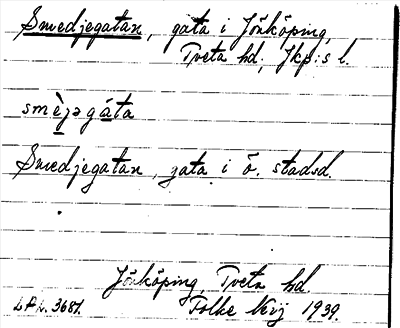 Smedjegatan, gata i Jönköping,
Tveta hd, Jkp:s l.
smè̱jəgá̱ta
Smedjegatan, gata i ö. stadsd.
Jönköping, Tveta hd.
Folke 1939.
3687.